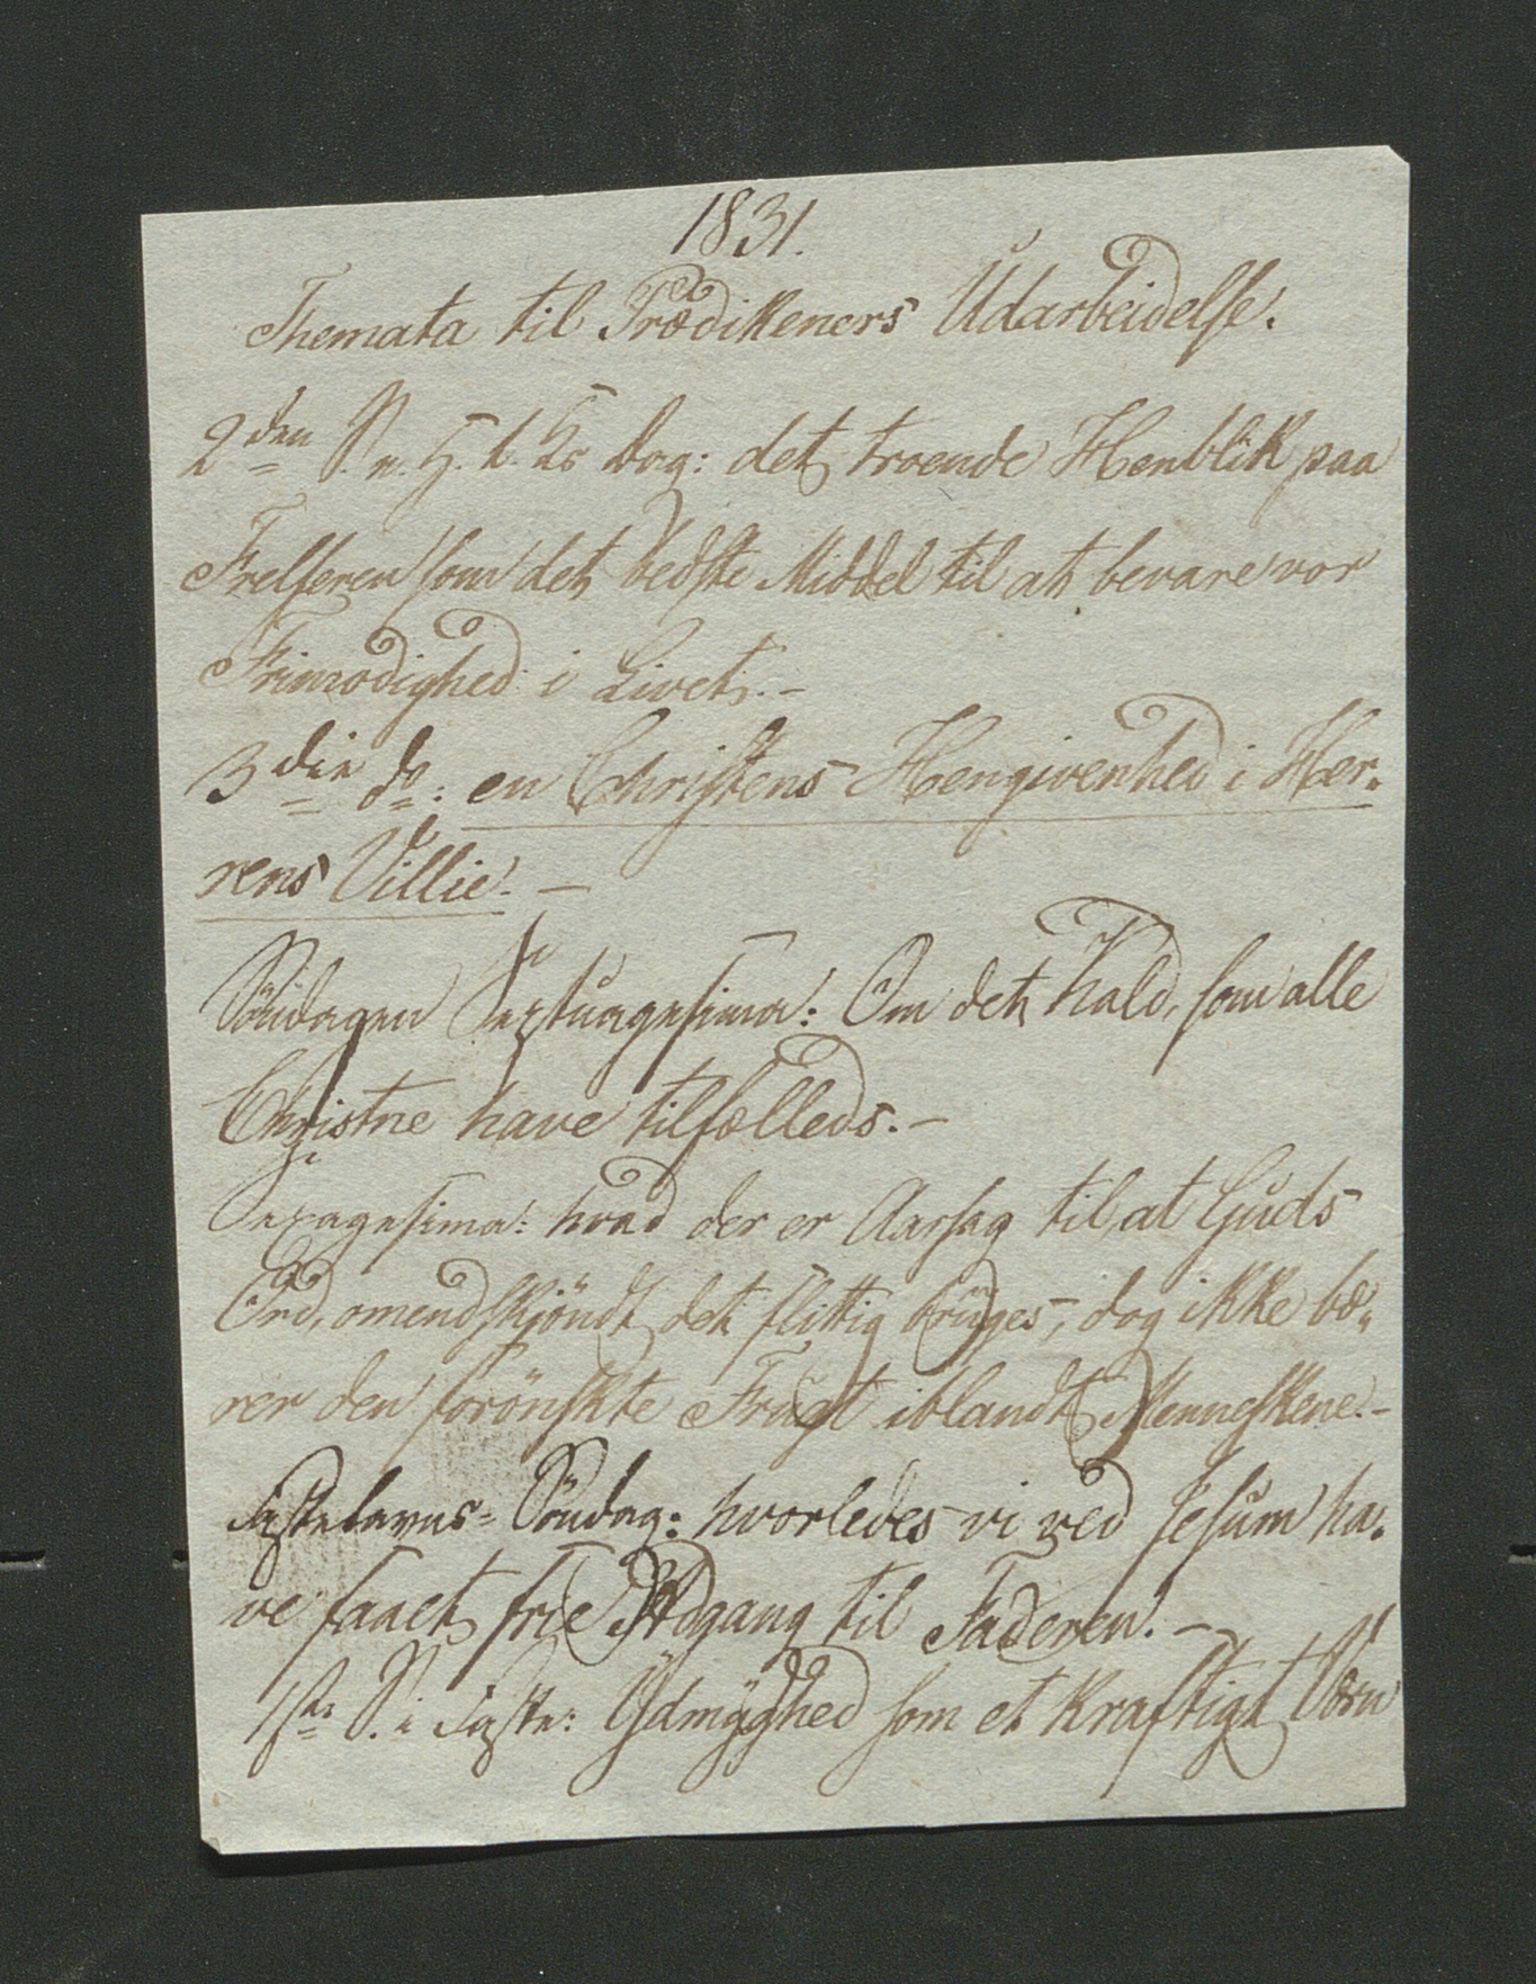 1831.
Themata til Prædikeners Udarbeidelse.
2den S. n. H. 3. K. Dag: det troende Henblik paa
Frelseren som det bedste Middel til at bevare vor
Frimodighed i Livet. –
3die do: en Christens Hengivenhed i Her-
rens Villie. –
Söndagen Septuagesima: Om det Kald, som alle
Christne have tilfælleds. –
Sexagesima: hvad der er Aarsag til, at Guds
Ord, omendskjöndt det flittig brüges, dog ikke bæ-
rer den forönskte Frugt iblandt Menneskene. –
Fastelavns-Söndag: hvorledes vi ved Jesum ha-
ve faaet frie Adgang til Faderen. –
1ste S. i Faste: Ydmyghed som et kraftigt Værn